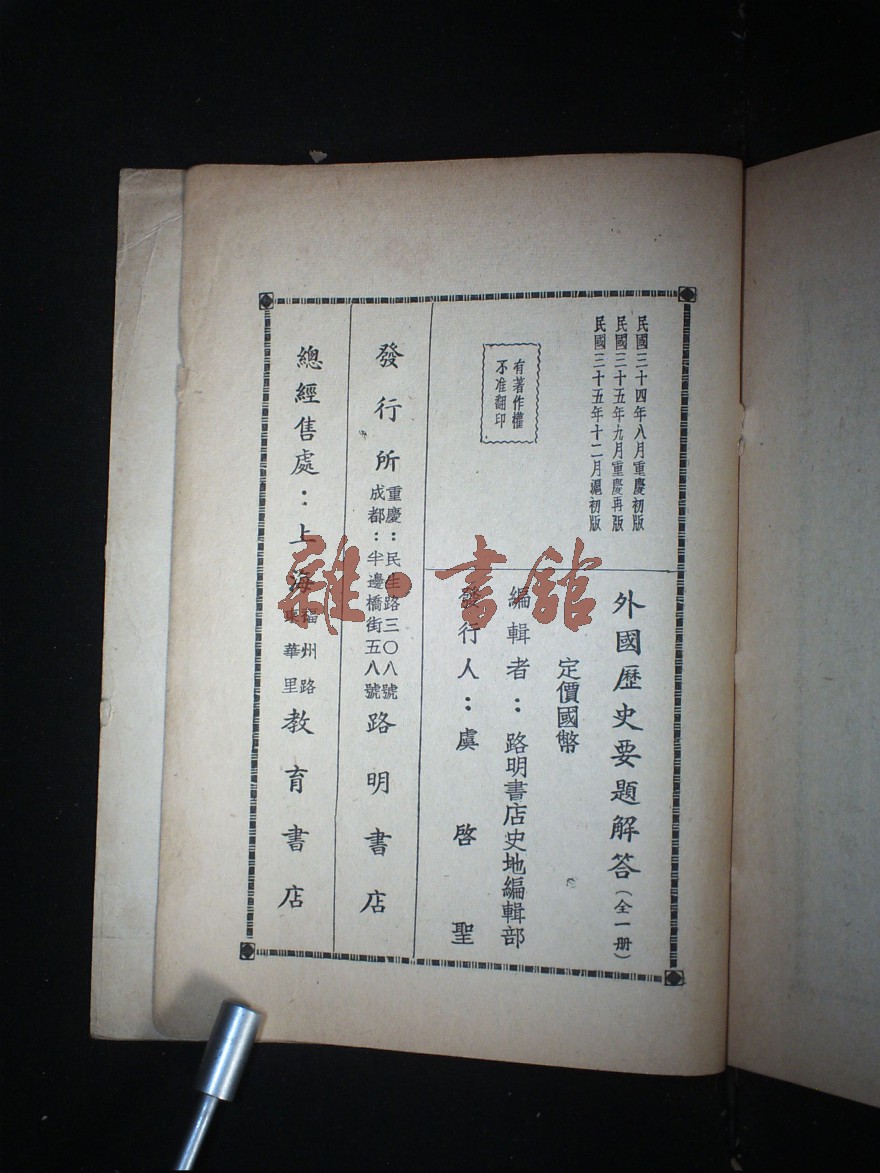 民國三十四年八月重慶初版
民國三十五年九月重慶再版
民國三十五年十二月滬初版
有著作權
不准翻印
外國歷史要題解答(全一册)
定價國幣
編輯者：路明書店史地編輯部
發行人：虞啓聖
發行所
重慶：民生路三〇八號
成都：半邊橋街五八號
路明書店
總經售處：上海
福州路
東華里
教育書店
雜·書館